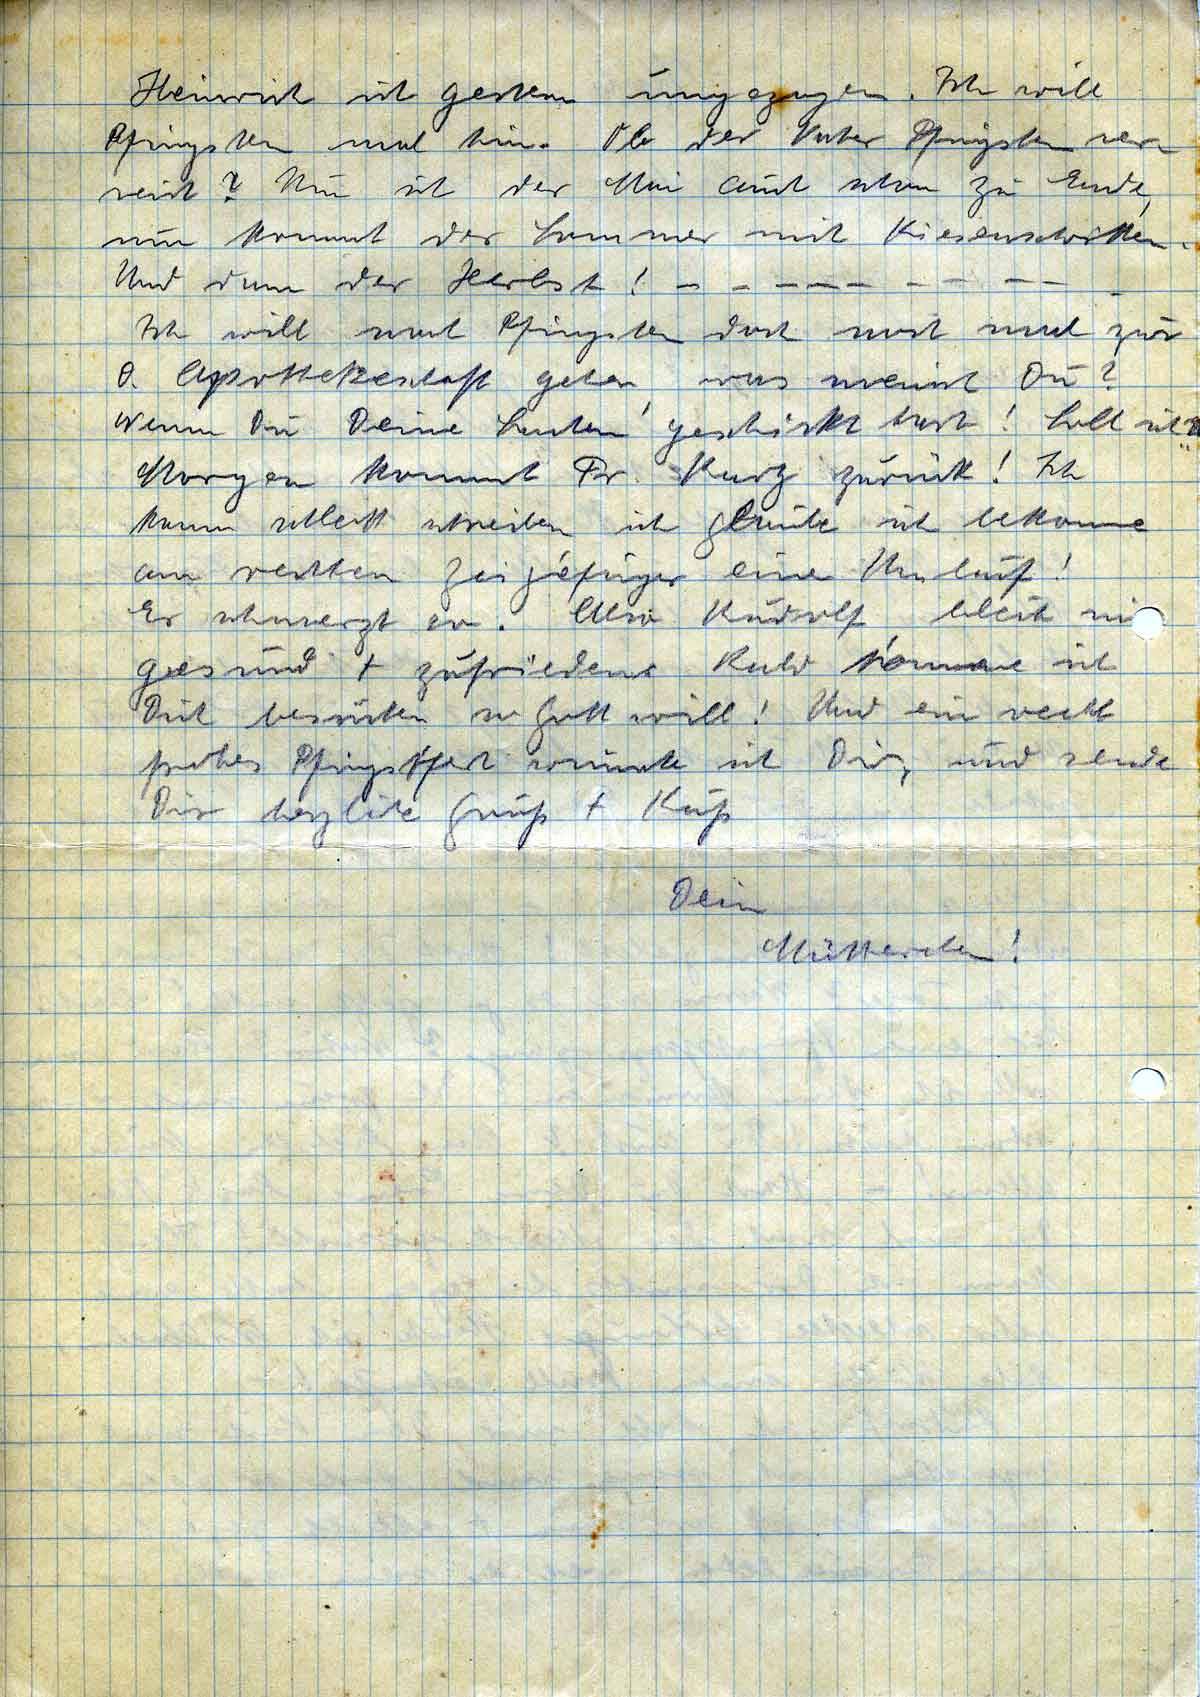 Heinrich ist gestern umgezogen. Ich will
Pfingsten mal hin. Ob der Vater Pfingsten ver
reist? Nun ist der Mai auch schon zu Ende,
nun kommt der Sommer mit Riesenschritten.
Und dann der Herbst! – – – – – – – – –
Ich will nach Pfingsten doch noch mal zur
O. Apothekeschaft gehen, was meinst Du?
Wenn Du Deine Sachen geschickt hast! Soll ich
Morgen kommt Fr. Kurtz zurück! Ich
kann schlecht schreiben ich glaube ich bekomme
am rechten Zeigefinger einen Umlauf!
Er schmerzt so. Also Rudolf bleib mir
gesund + zufrieden. Bald komme ich
Dich besuchen so Gott will! Und ein recht
frohes Pfingstfest wünsche ich Dir, und sende
Dir herzliche Gruß + Kuß
Dein
Mütterchen!